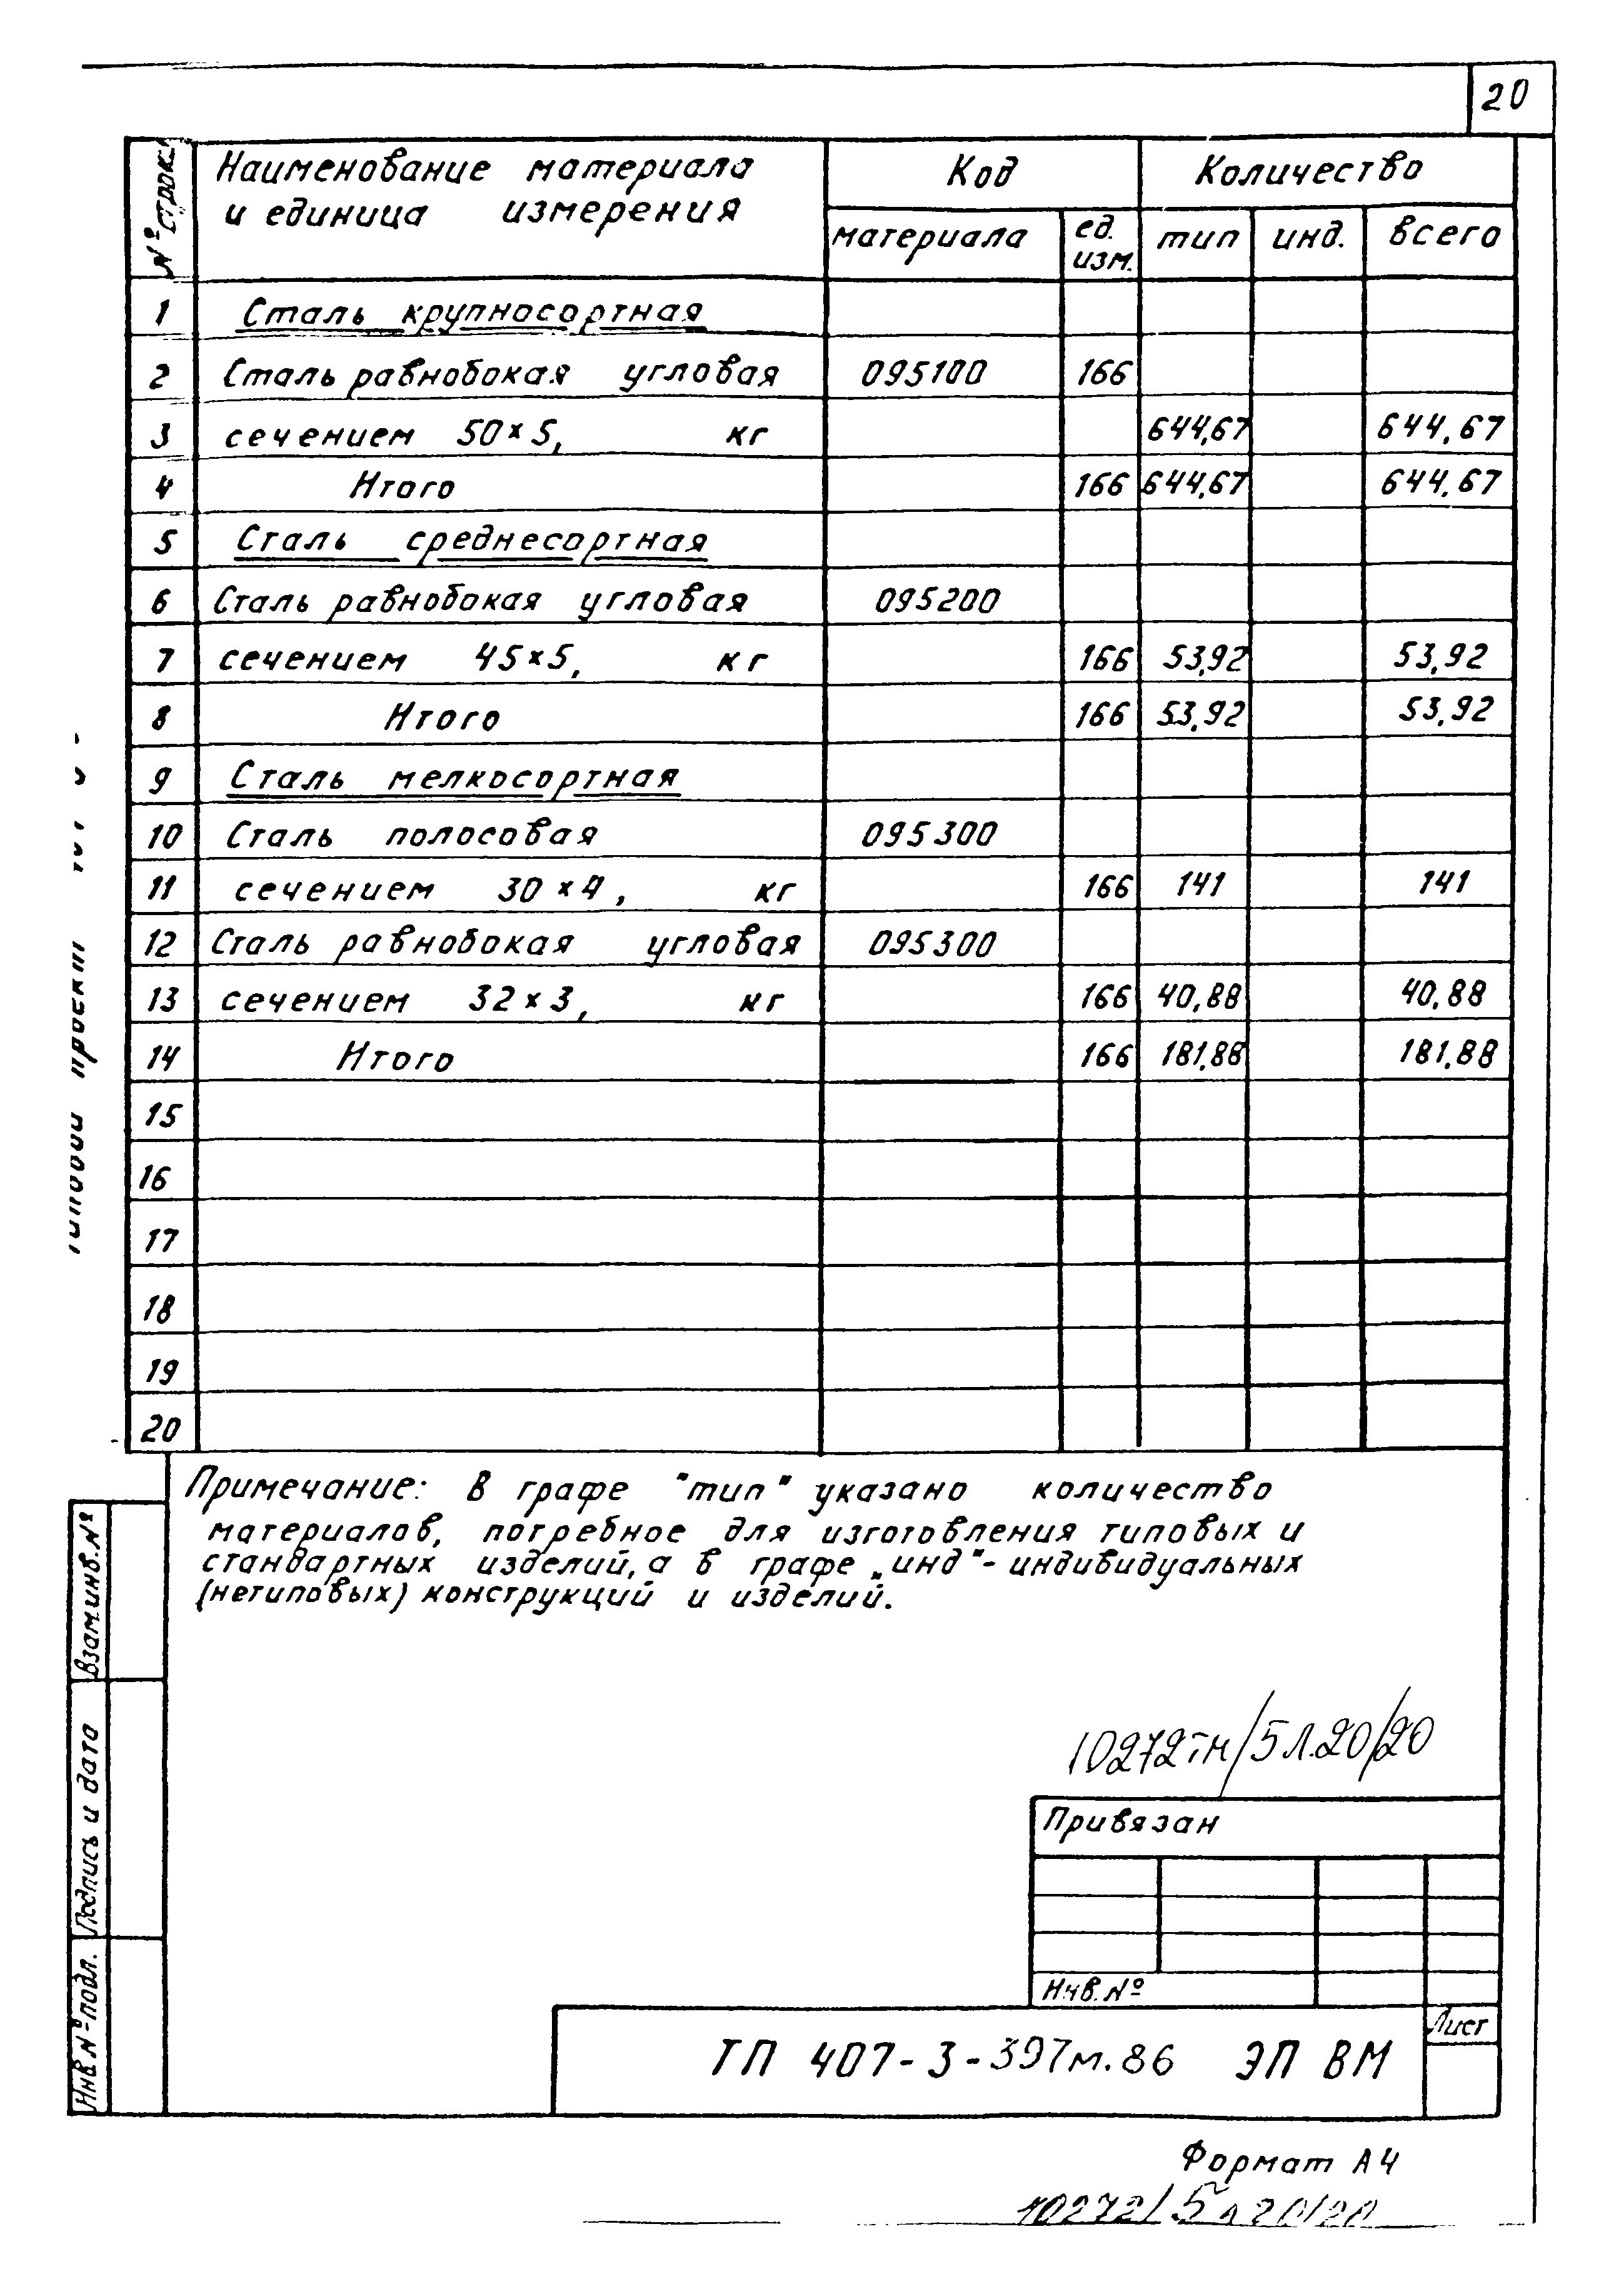 20
№ строк
Наименование материала
и единица измерения
Код
Количество
материала
ед. изм.
тип
инд.
всего
1 Сталь крупносортная
2 Сталь равнобокая угловая 095100 166
3 сечением 50×5, кг 644,67 644,67
4 Итого 166 644,67 644,67
5 Сталь среднесортная
6 Сталь равнобокая угловая 095200
7 сечением 45×5, кг 166 53,92 53,92
8 Итого 166 53,92 53,92
9 Сталь мелкосортная
10 Сталь полосовая 095300
11 сечением 30×4, кг 166 141 141
12 Сталь равнобокая угловая 095300
13 сечением 32×3, кг 166 40,88 40,88
14 Итого 166 181,88 181,88
15
16
17
18
19
20
Примечание: В графе "тип" указано количество
материалов, потребное для изготовления типовых и
стандартных изделий, а в графе „инд"- индивидуальных
(нетиповых) конструкций и изделий.
10272тм/5 Л.20/20
Привязан
Инв.№
ТП 407-3-397м.86 ЭП ВМ
Лист
Взам.инв.№
Подпись и дата
Инв.№подл.
проект
Формат А4
10272/5 л 20/20